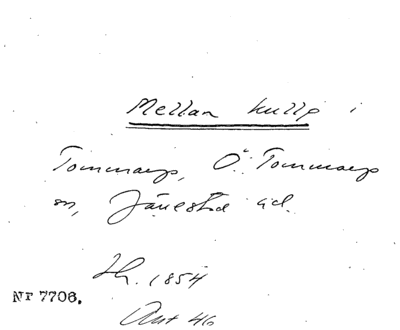 Mellan Kullp i
Tommarp, Ö. Tommarp
sn, Järrestad hd.
Th. 1854
Nr 7706.
Ant 46